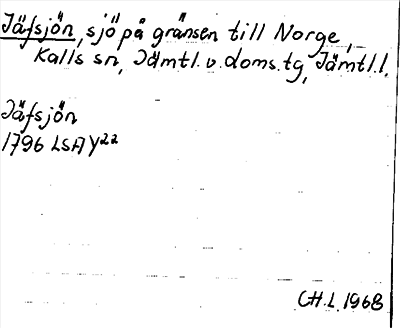 Jäfsjön, sjö på gränsen till Norge,
Kalls sn, Jämtl.v.doms.tg, Jämtl.l.
Jäfsjön
1796 LSA Y22
CH.L. 1968